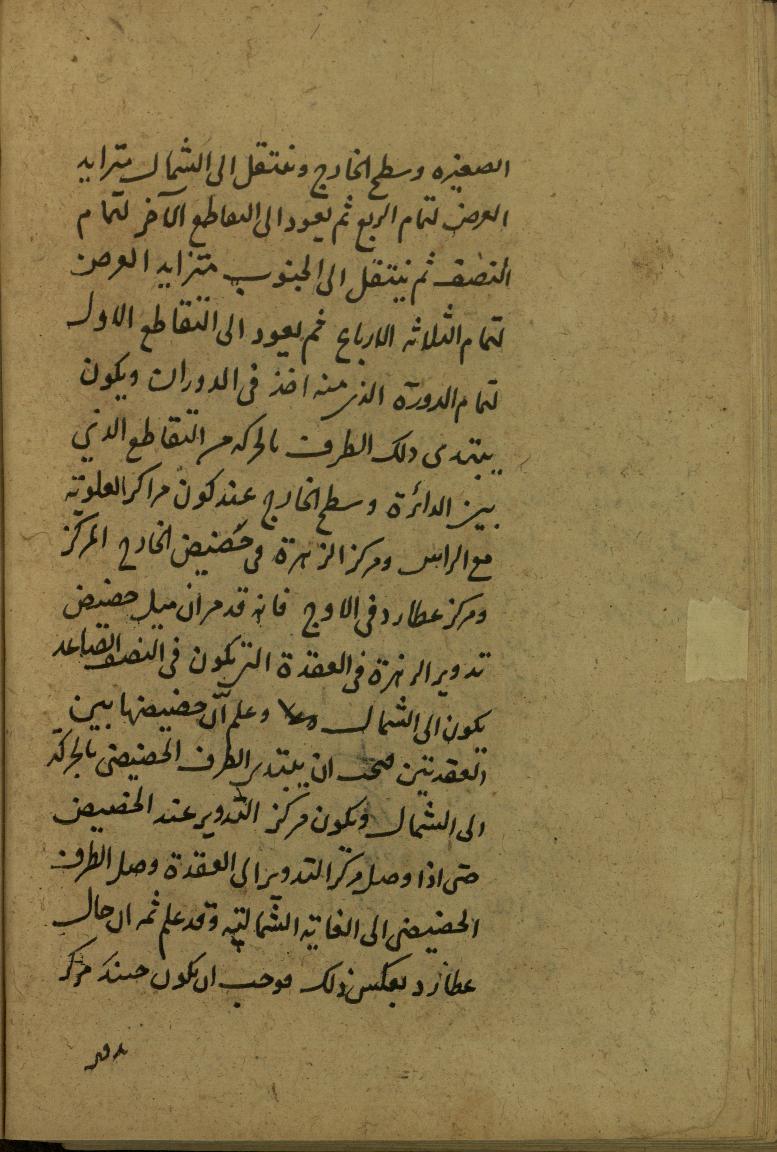 الصغيره وسطح الخارج وينتقل الى الشمال متزايد
العرض لتمام الربع ثم يعود الى التقاطع الآخر لتمام
النصف ثم ينتقل الى الجنوب متزايد العرض
لتمام الثلاثه الارباع ثم يعود الى التقاطع الاول
لتمام الدورة الذى منه اخذ فى الدورات ويكون
يبتدى ذلك الطرف بالحركه من التقاطع الذي
بين الدائرة وسطح الخارج عند كون مراكز العلويّه
مع الراس ومركز الزهرة فى حضيض الخارج المركز
ومركز عطارد فى الاوج فانه قد مر ان ميل حضيض
تدوير الزهرة فى العقدة التى تكون فى النصف الصاعد
يكون الى الشمال وعلم انّ حضيضها بين
العقدتين فيجب ان يبتدى الطرف الحضيضى بالحركة
الى الشمال ويكون مركز التدوير عند الحضيض
حتى اذا وصل مركز التدوير الى العقدة وصل الطرف
الحضيضى الى الغاية الشماليّه وقد علم ثمه ان حال
عطارد بعكس ذلك فوجب ان يكون حينئذ مركز